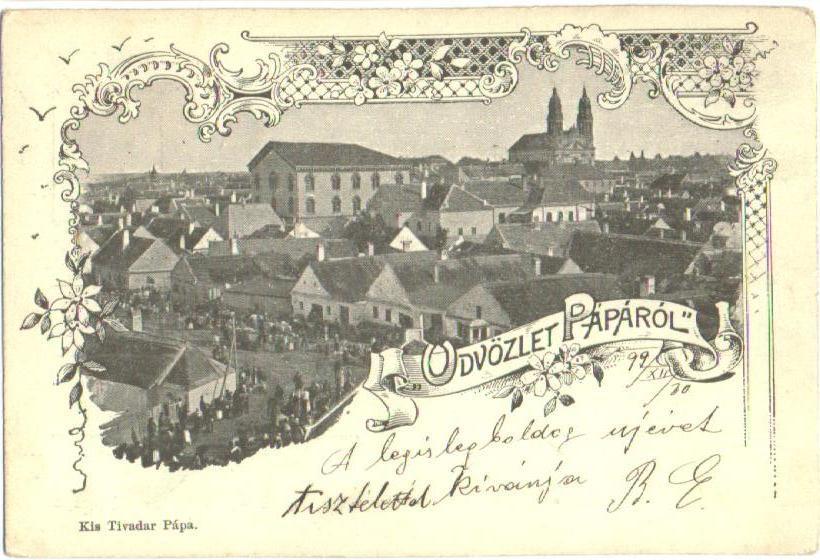 „ÜDVÖZLET PÁPÁRÓL"
99/XII/30
A legislegboldog ujévet
tisztelettel kivánja B. E.
Kis Tivadar Pápa.